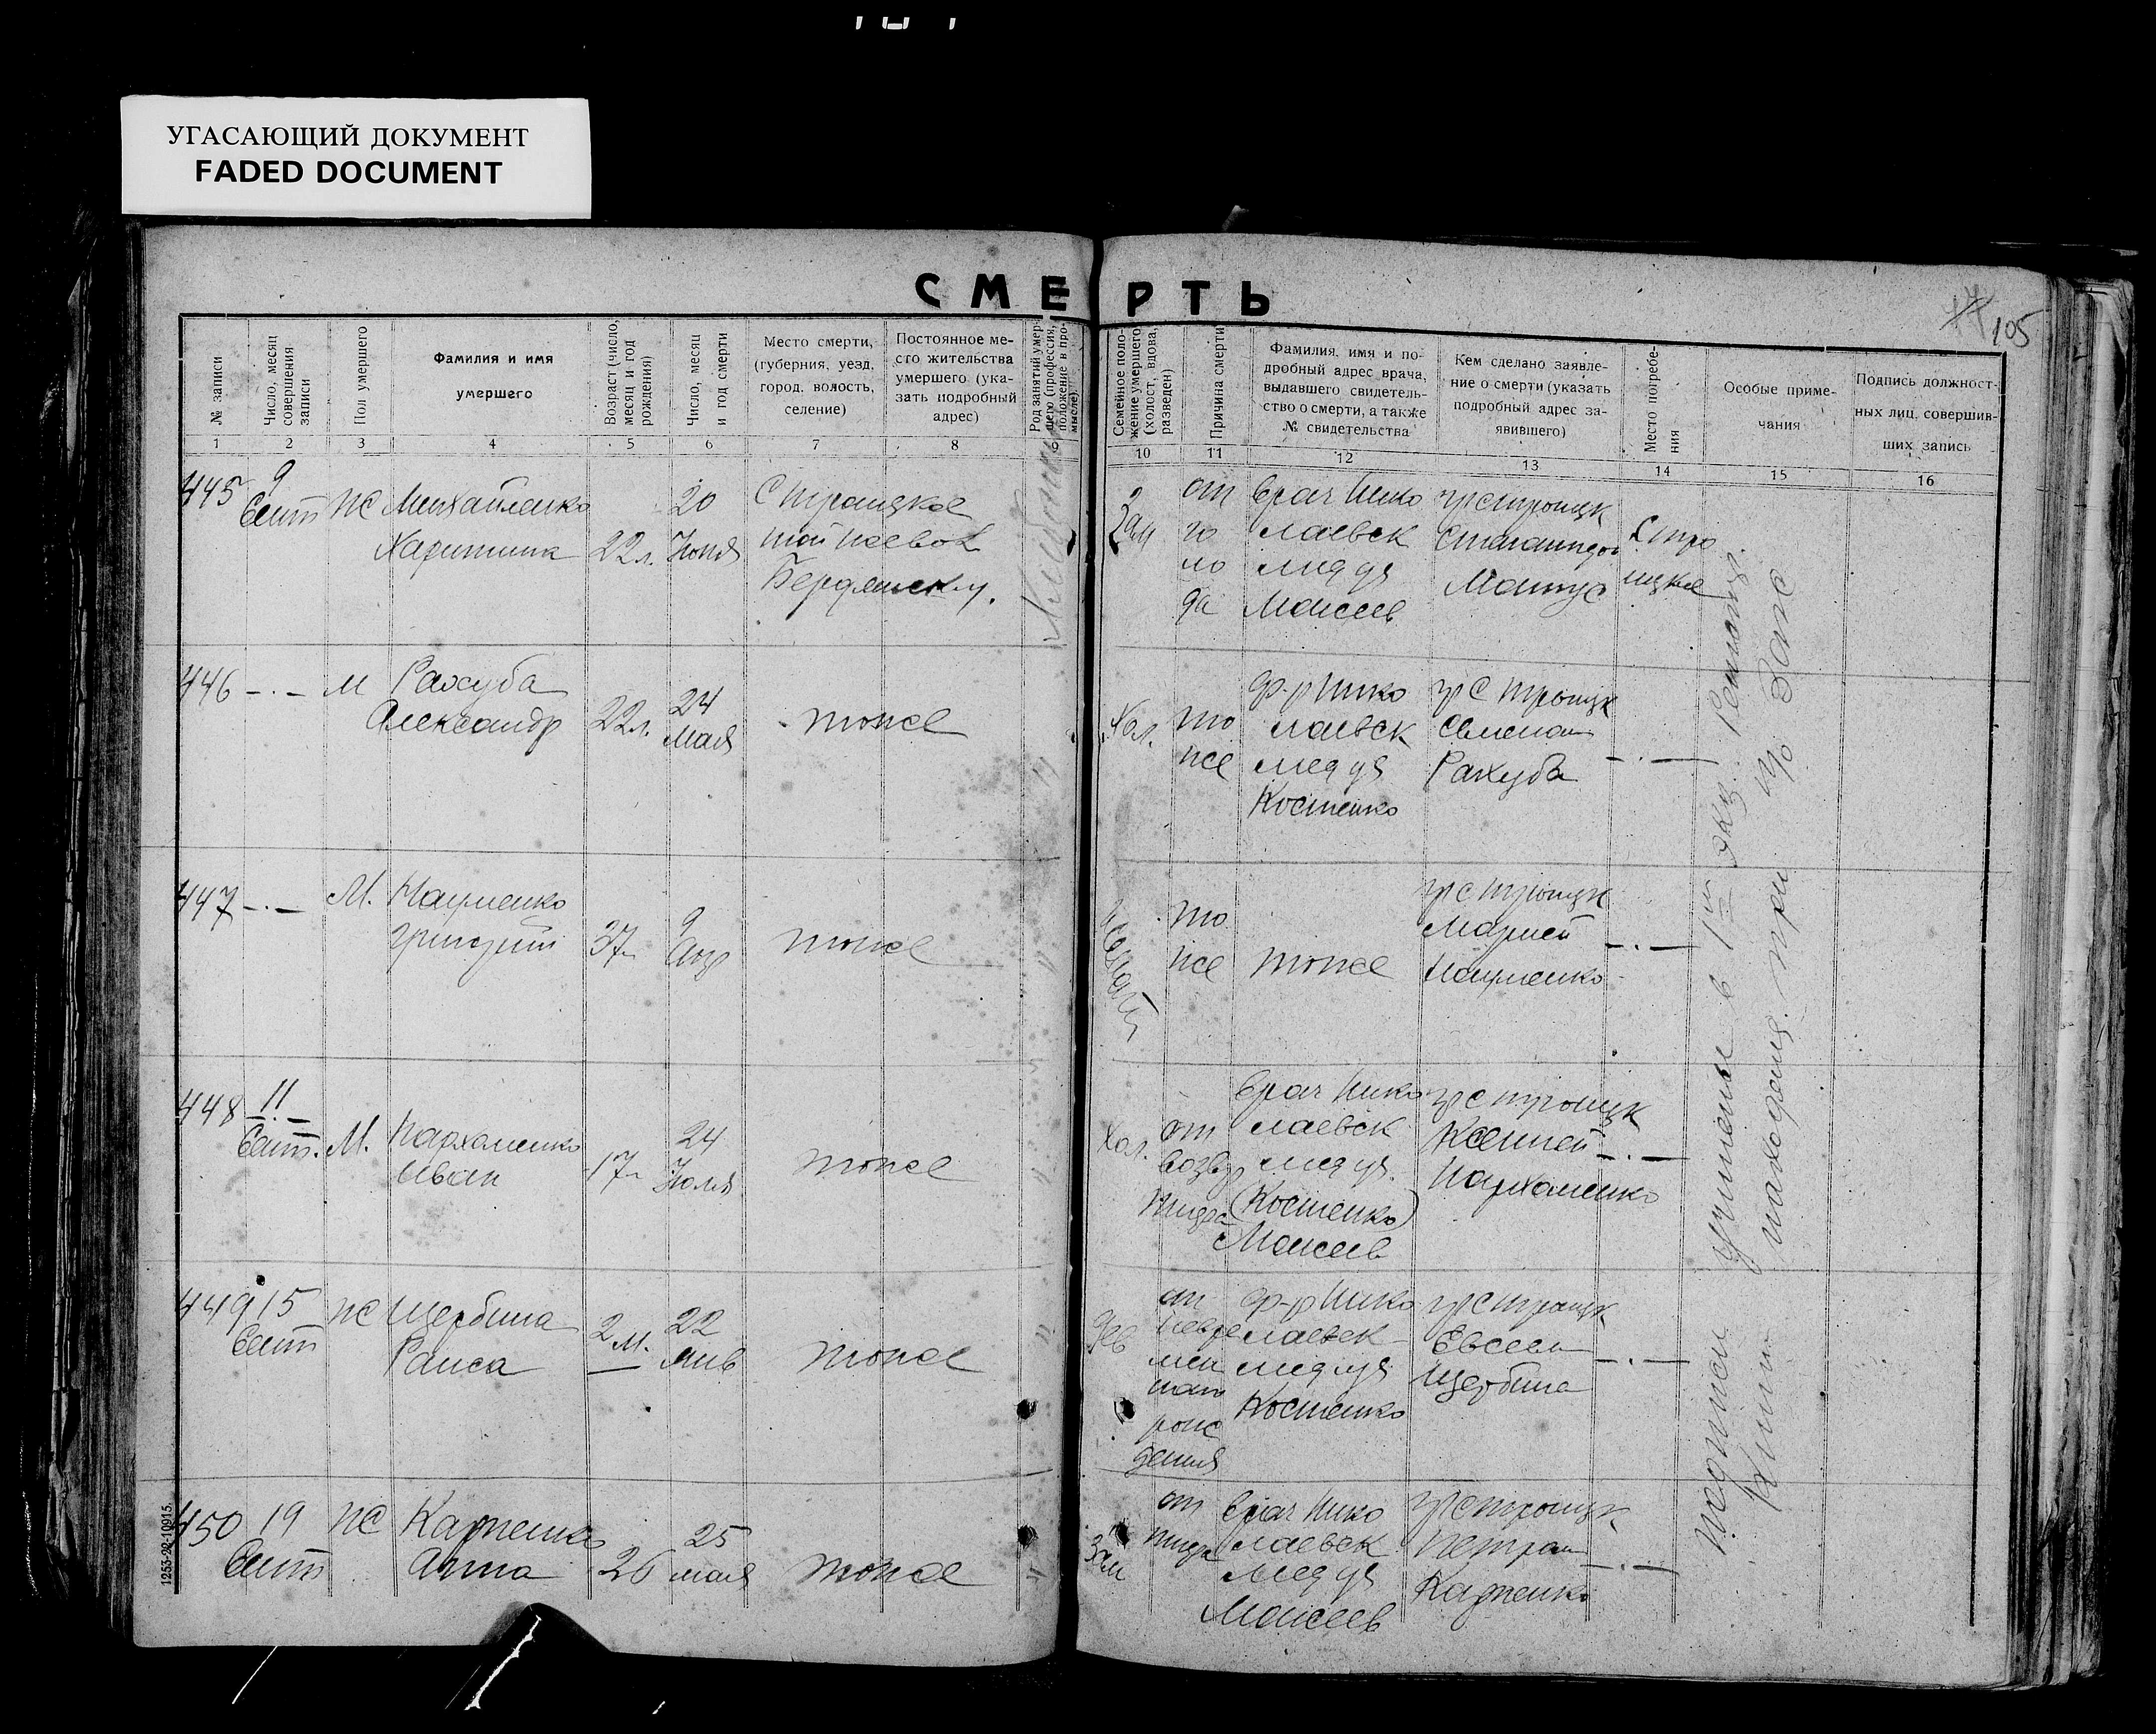 УГАСАЮЩИЙ ДОКУМЕНТ
FADED DOCUMENT
СМЕРТЬ
105
№ записи
Число, месяц совершения записи
Пол умершего
Фамилия и имя
умершего
Возраст (число, месяц и год рождения)
Число, месяц и год смерти
Место смерти,
(губерния, уезд,
город, волость,
селение)
Постоянное ме-
сто жительства
умершего (ука-
зать подробный
адрес)
Род занятий умер-
шего (профессия,
положение в про-
мысле)
Семейное поло-
жение умершего
(холост, вдова,
разведен)
Причина смерти
Фамилия, имя и по-
дробный адрес врача,
выдавшего свидетель-
ство о смерти, а также
№ свидетельства
Кем сделано заявле-
ние о смерти (указать
подробный адрес за-
явившего)
Место погребе-
ния
Особые приме-
чания
Подпись должност-
ных лиц, совершив-
ших запись
1 2 3 4 5 6 7 8 9 10 11 12 13 14 15 16
445
9
Сент
же
Михайленко
22 л.
20
Июня
С Троицкое
той же вол
Бердянск у.
Зам
от
го
ло
да
врач Нико
лаевск
мед уч
Моисеев
гр с Троицк
Матус
С Тро
ицкое
446 -·-
м
Рахуба
Александр
22 л.
24
мая
тоже
Хол.
то
же
ф-р Нико
лаевск
мед уч
Костенко
гр с Троицк
Семеном
Рахуба
-·-
447 -·-
М.
Науменко
Григорий
37
9
Апр
тоже
то
же
тоже
гр с Троицк
Марией
Науменко
-·-
448
11
Сент.
М.
Пархоменко
Иван
17
24
Июля
тоже
Хол.
от
возвр
тифа
врач Нико
лаевск
мед уч.
(Костенко)
Моисеев
гр с Троицк
Ксенией
Пархоменко
-·-
449
15
Сент
же
Щербина
Раиса
2 м.
22
янв
тоже
дев
от
мен
рож
дения
ф-р Нико
лаевск
мед уч
Костенко
гр с Троицк
Евсеем
Щербина
-·-
450
19
Сент
же
Карпенко
Анна
26
25
мая
тоже
Зам
от
тифа
врач Нико
лаевск
мед уч
Моисеев
гр с Троицк
Петром
Карпенко
-·-
1253-22-10915.